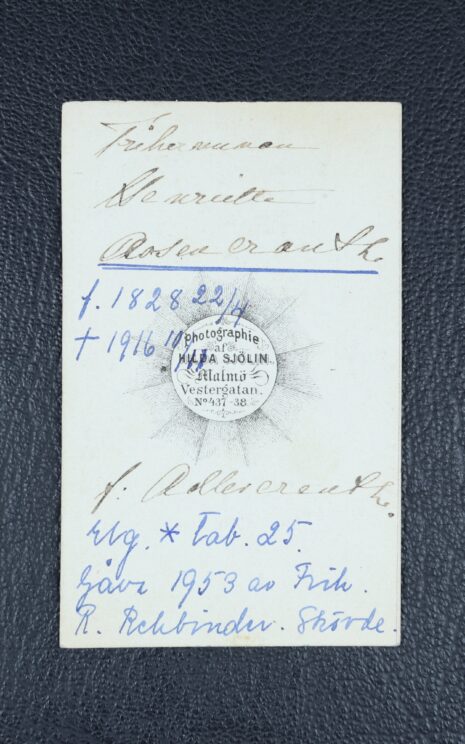 Friherrinnan
Henriette
Rosencrantz.
f. 1828 22/4
† 1916 10/11
Photographie
af
HILDA SJÖLIN
Malmö
Vestergatan.
No 437-38.
f. Adlercreutz.
Elg. * Tab. 25.
Gåva 1953 av Frih.
R. Rehbinder. Skövde.